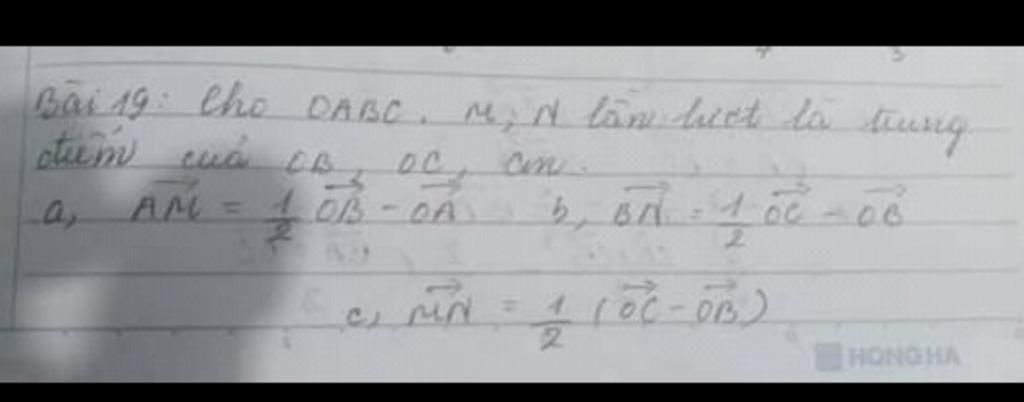 Bài 19: Cho OABC. M, N lần lượt là trung
điểm của OB, OC, Cm.
a, \overrightarrow{AM} = \frac{1}{2} \overrightarrow{OB} - \overrightarrow{OA} b, \overrightarrow{BN} = \frac{1}{2} \overrightarrow{OC} - \overrightarrow{OB}
c, \overrightarrow{MN} = \frac{1}{2} (\overrightarrow{OC} - \overrightarrow{OB})
HONG HA